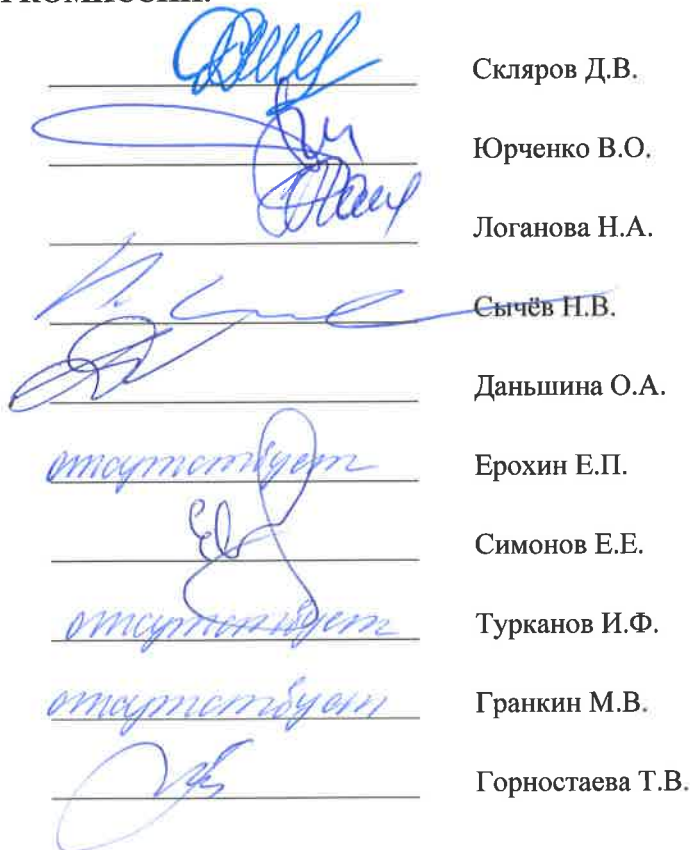 Скляров Д.В.
Юрченко В.О.
Логанова Н.А.
Сычёв Н.В.
Даньшина О.А.
отсутствует Ерохин Е.П.
Симонов Е.Е.
отсутствует Турканов И.Ф.
отсутствует Гранкин М.В.
Горностаева Т.В.